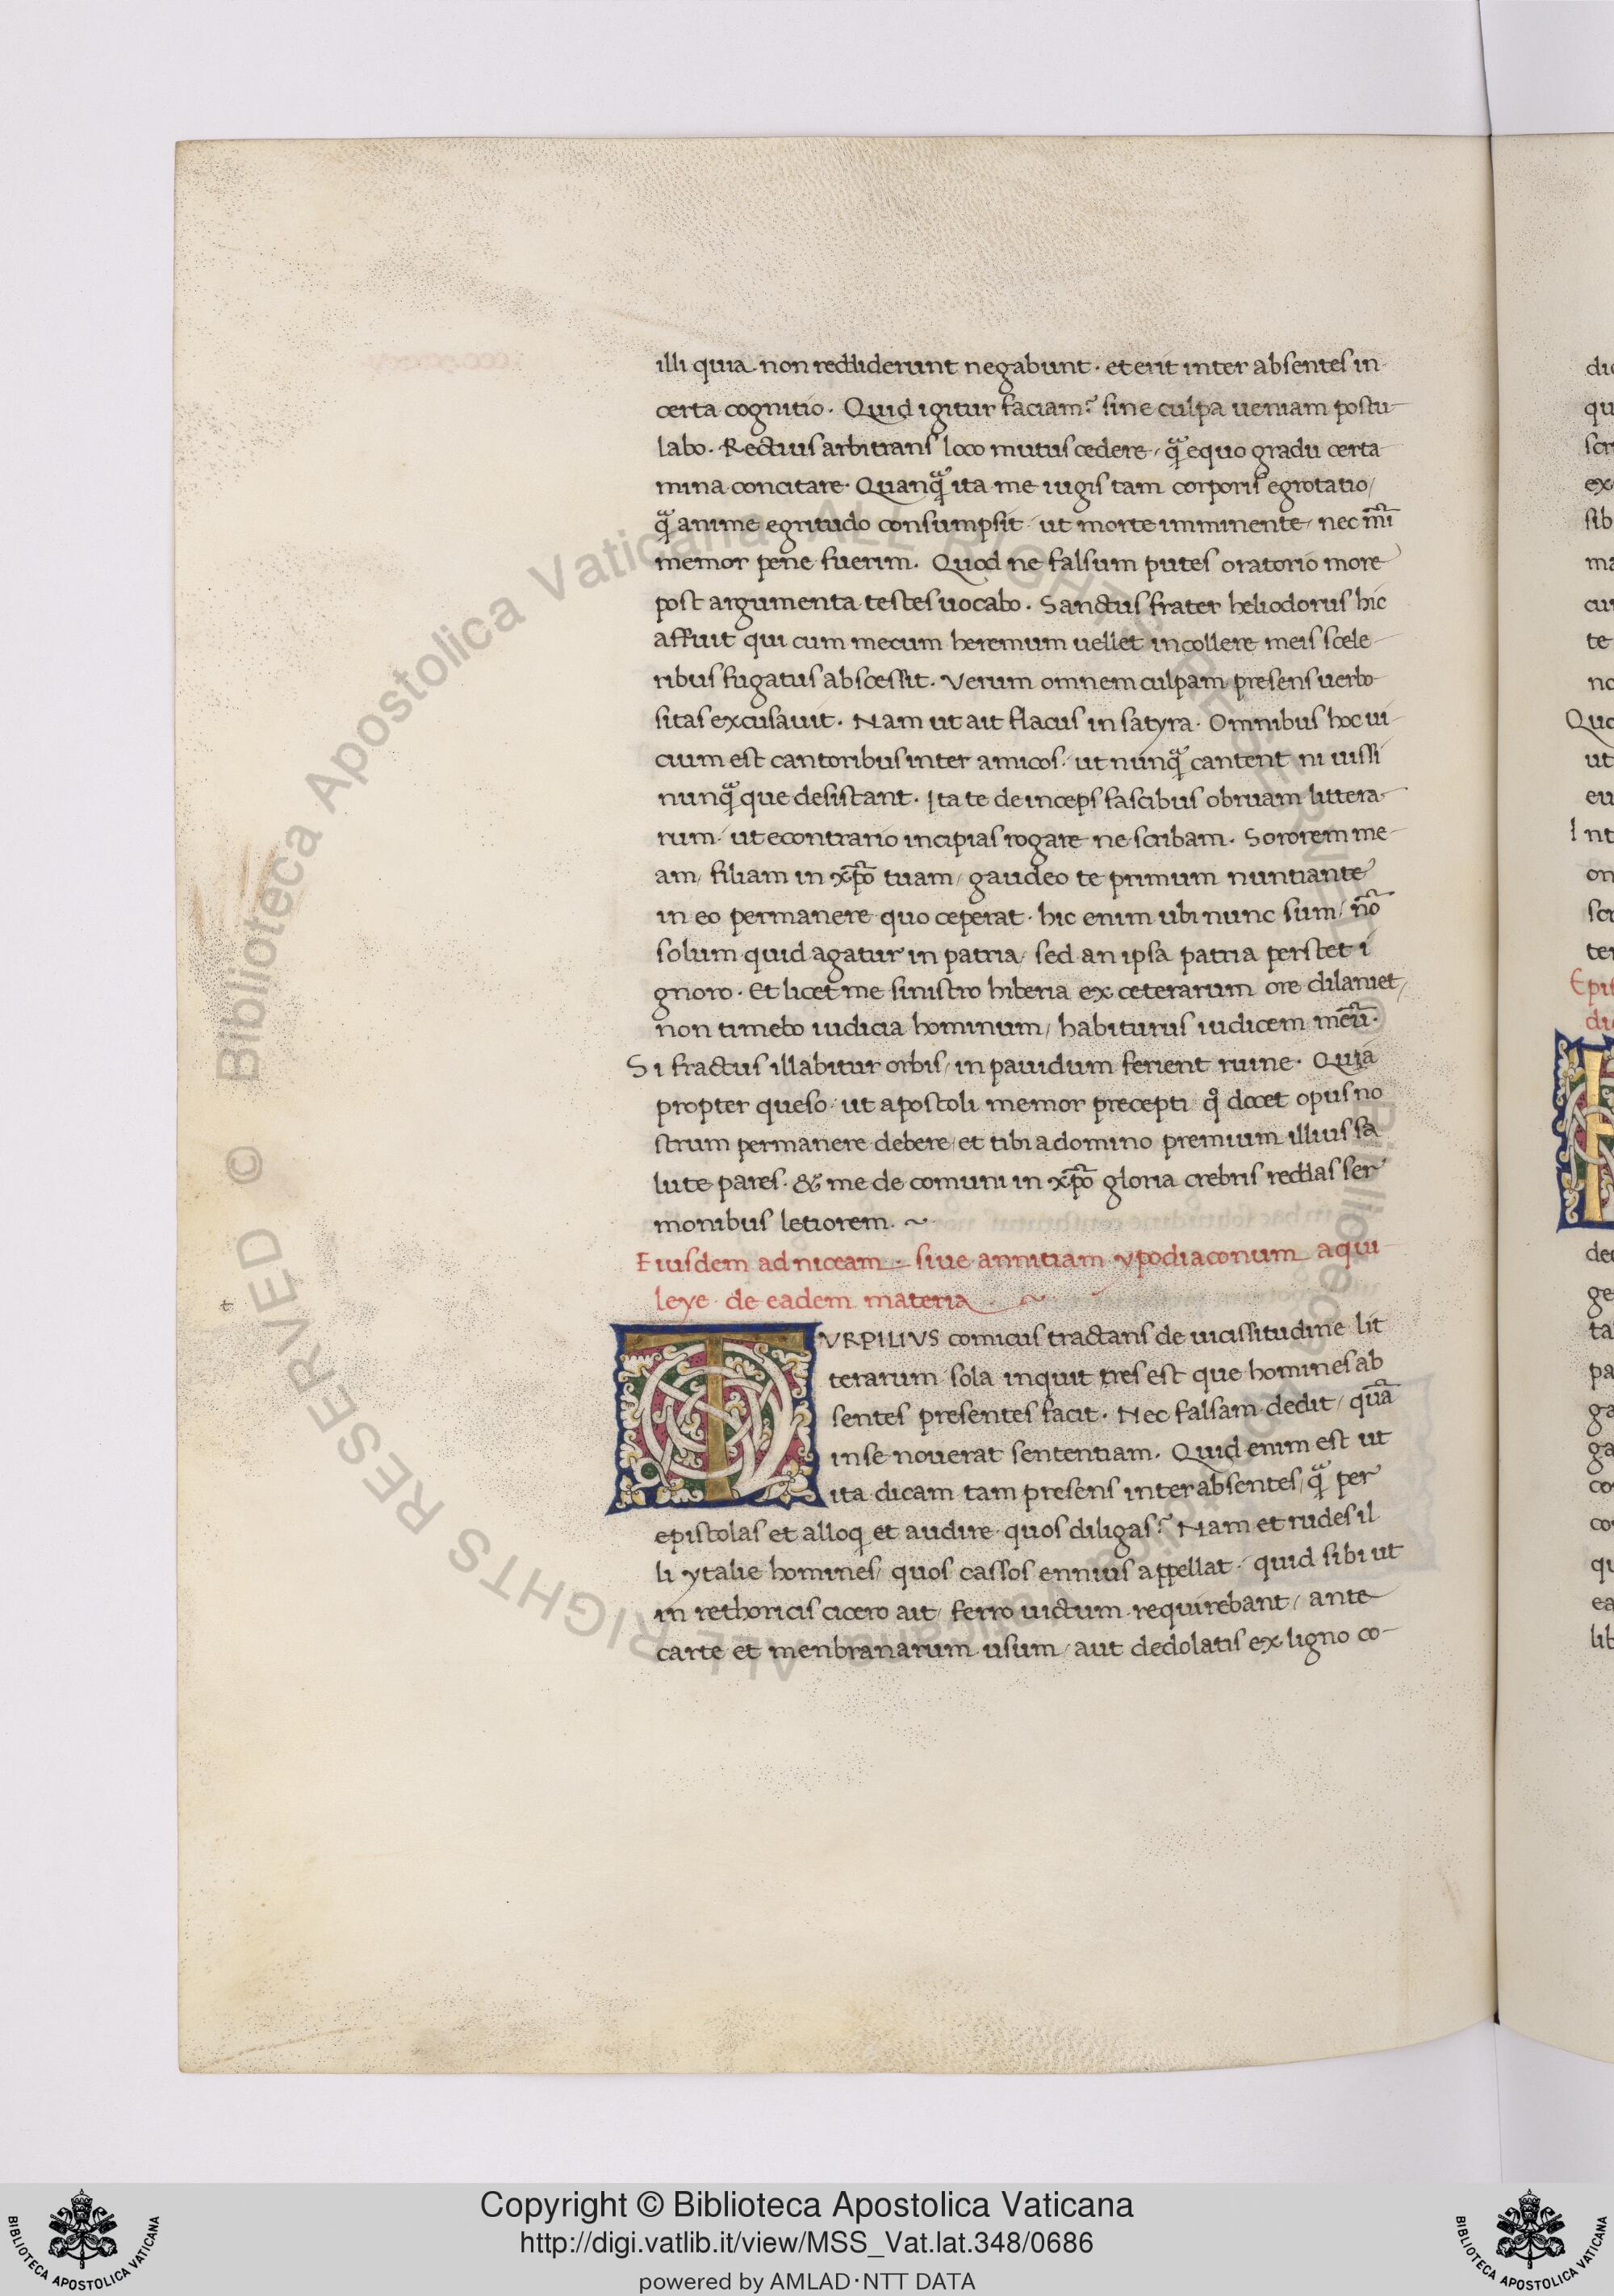 illi quia non reddiderunt negabunt · et erit inter absentes in-
certa cognitio · Quid igitur faciam? sine culpa ueniam postu-
labo · Rectius arbitrans loco mutus cedere / q̃ equo gradu certa
mina concitare · Quanq̃ ita me iugis tam corporis egrotatio /
q̃ anime egritudo consumpsit / ut morte imminente / nec m̃i
memor pene fuerim · Quod ne falsum putes oratorio more
post argumenta testes uocabo · Sanctus frater heliodorus hic
affuit qui cum mecum heremum uellet incollere meis scele-
ribus fugatus abscessit · Verum omnem culpam presens uerbo
sitas excusauit · Nam ut ait flacus in satyra · Omnibus hoc ui-
cium est cantoribus inter amicos / ut nunq̃ cantent ni iussi
nunq̃ que desistant · Ita te deinceps fascibus obruam littera-
rum / ut econtrario incipias rogare ne scribam · Sororem me-
am / filiam in xp̃o tuam / gaudeo te primum nuntiante
in eo permanere quo ceperat · hic enim ubi nunc sum / nõ
solum quid agatur in patria / sed an ipsa patria perstet i
gnoro · Et licet me sinistro hiberia excetrarum ore dilaniet /
non timebo iudicia hominum / habiturus iudicem meũ ·
Si fractus illabitur orbis / inpauidum ferient ruine · Quia
propter queso / ut apostoli memor precepti q̊ docet opus no
strum permanere debere / et tibi a domino premium illius sa
lute pares · & me de comuni in xp̃o gloria crebris reddas ser
monibus letiorem · ~
Eiusdem ad niceam · siue annitiam ypodiaconum aqui
leye de eadem materia · ~
TVRPILIVS comicus tractans de uicissitudine lit
terarum / sola inquit res est que homines ab
sentes presentes facit · Nec falsam dedit / quã
in se nouerat sententiam · Quid enim est ut
ita dicam tam presens inter absentes / q̃ per
epistolas et alloq̃ et audire quos diligas? Nam et rudes il
li ytalie homines / quos cassos ennius appellat / quid sibi ut
in rethoricis cicero ait / ferro uictum requirebant / ante
carte et menbranarum usum / aut dedolatis ex ligno co-
Copyright © Biblioteca Apostolica Vaticana
http://digi.vatlib.it/view/MSS_Vat.lat.348/0686
powered by AMLAD·NTT DATA
BIBLIOTECA APOSTOLICA VATICANA
BIBLIOTECA APOSTOLICA VATICANA
© Biblioteca Apostolica Vaticana ALL RIGHTS RESERVED